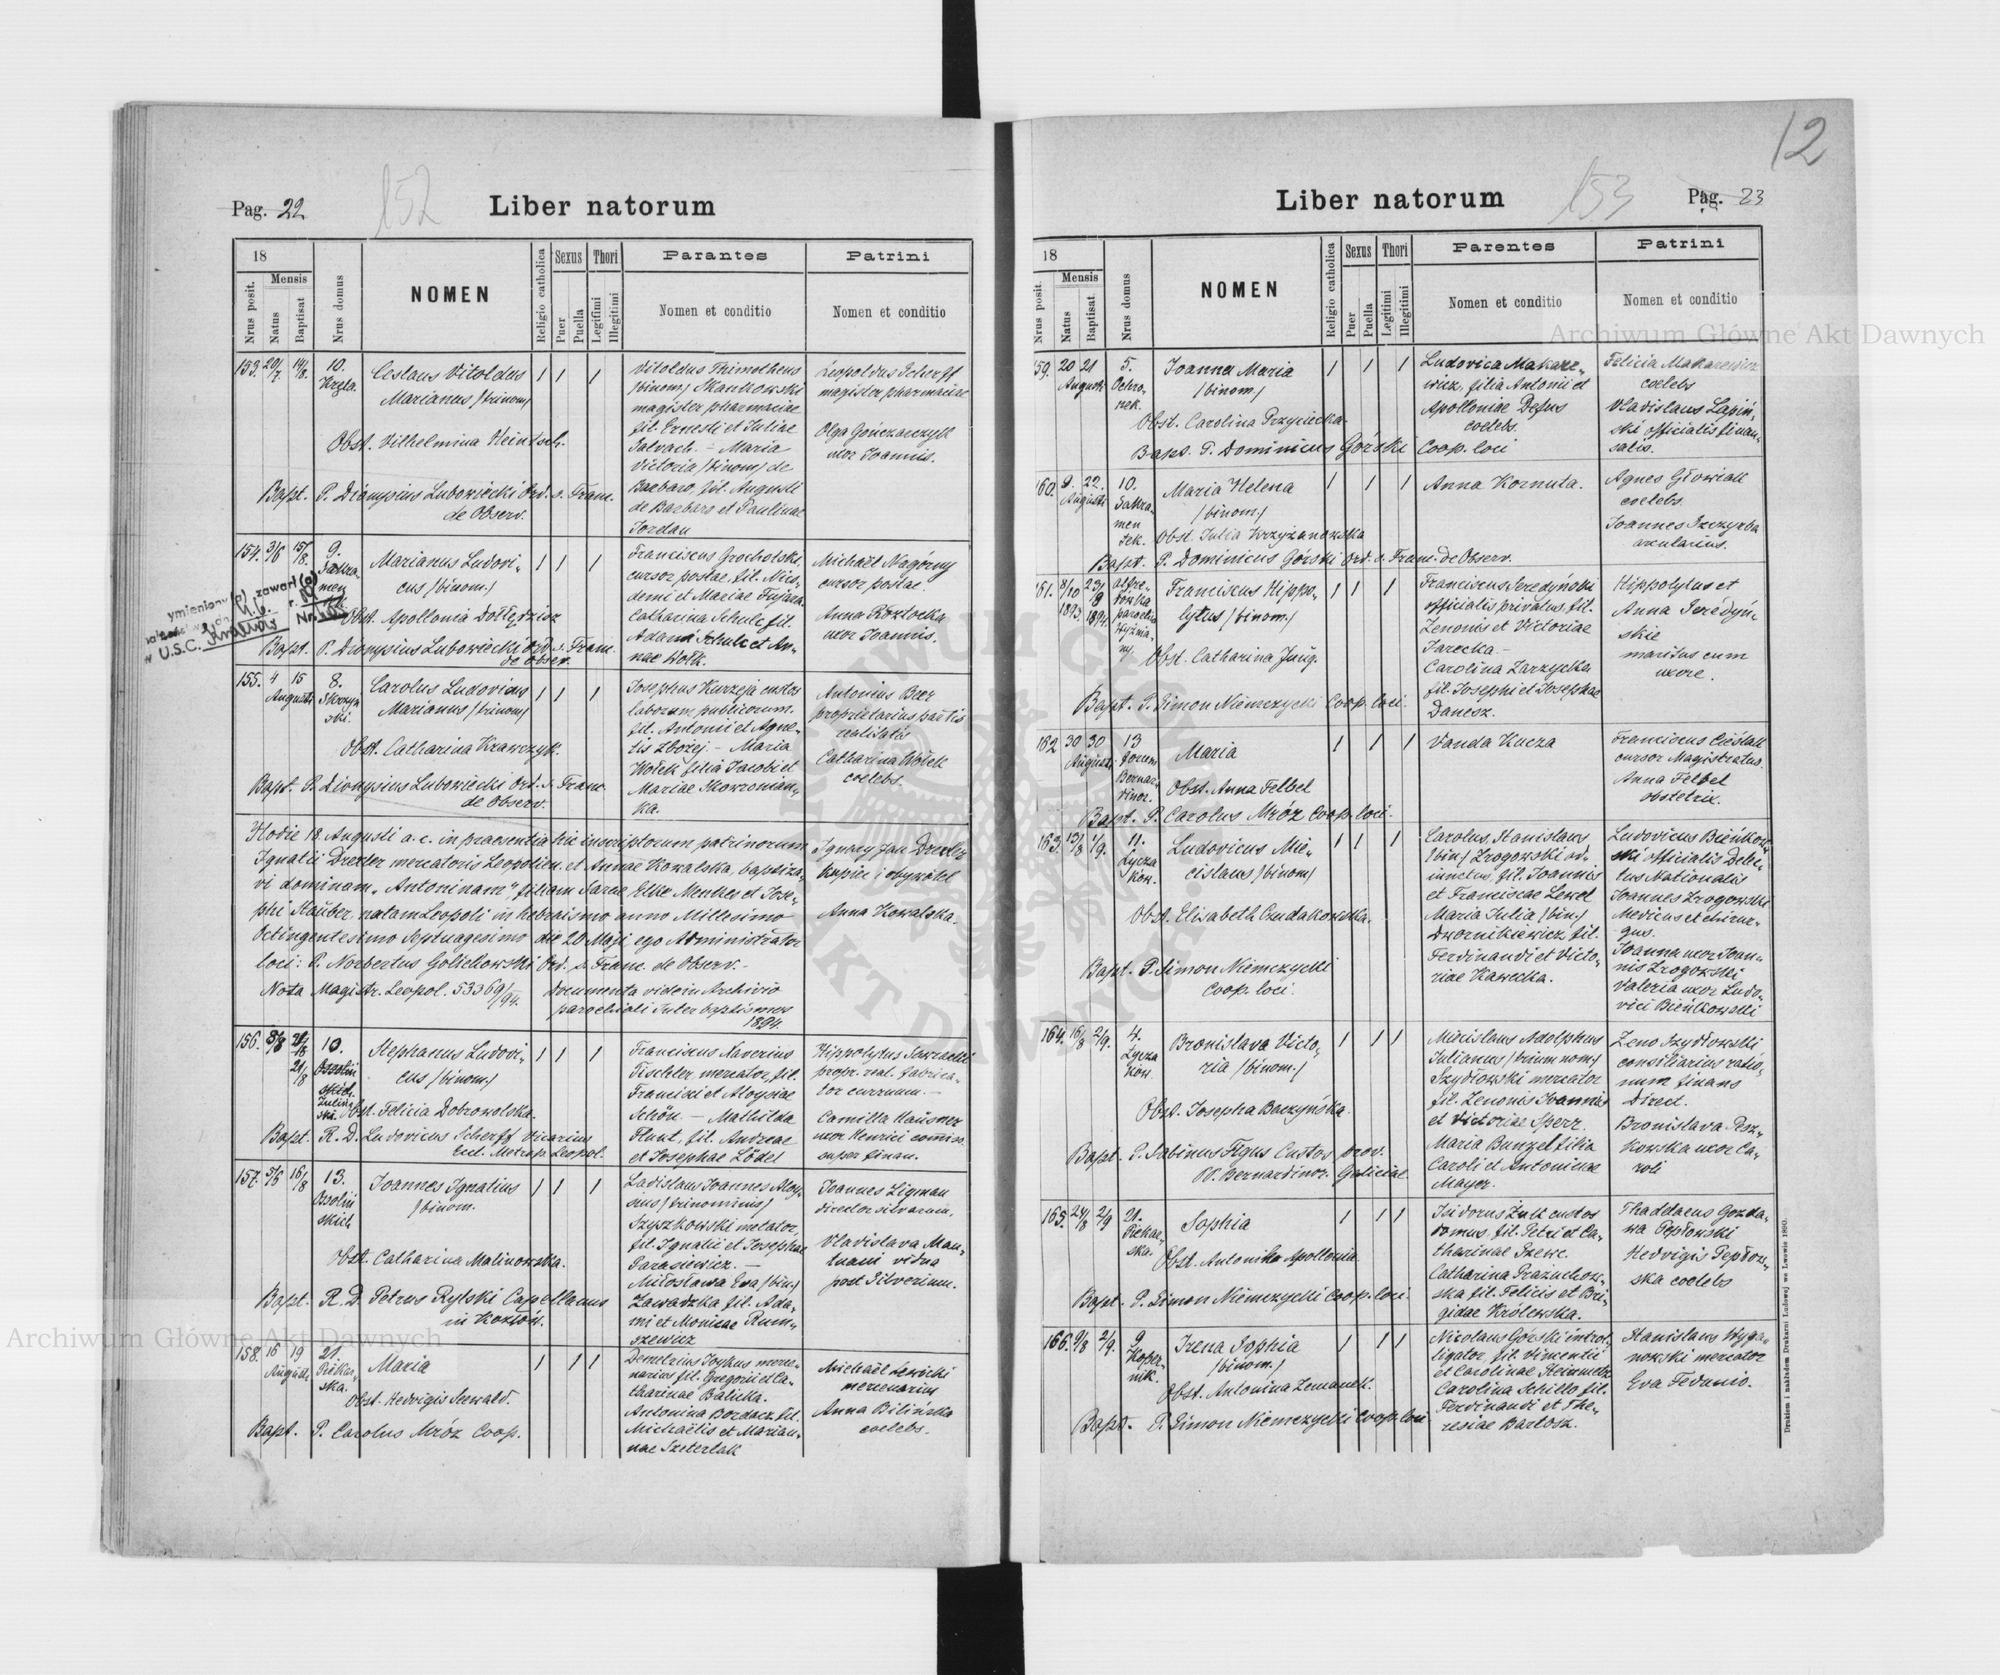 Pag. 22
152
Liber natorum
18
Mensis
Nrus posit.
Natus
Baptisat
Nrus domus
NOMEN
Religio catholica
Sexus
Puer
Puella
Thori
Legitimi
Illegitimi
Parantes
Nomen et conditio
Patrini
Nomen et conditio
153. 20/7 14/8. 10.
Ceslaus Vitoldus
Marianus /trinom/
Obst. Vilhelmina Heintsch.
Bapt. P. Dionysius Lubowiecki Ord. s. Franc.
de Observ.
Vitoldus Thimotheus
/binom/ Mankowski
magister pharmaciae
fil. Ernesti et Juliae
Salvach. – Maria
Victoria /binom/ de
Barbaro, fil. Augusti
de Barbaro et Paulinae
Jordan
Leopoldus Scherff
magister pharmaciae
Olga Gonczarczyk
uxor Joannis.
154. 3/6 15/8. 9.
Sakra-
men
Marianus Ludovi-
cus /binom./
Obst. Apollonia Dołłędzisz
Bapt. P. Dionysius Lubowiecki Ord. s. Franc.
de Observ.
Franciscus Grocholski,
cursor postae, fil. Nico-
demi et Mariae Fujara.
Catharina Schulc fil.
Adami Schulc et An-
nae Wołk.
Michaël Nagórny
cursor postae.
Anna Kozłocka
uxor Joannis.
ymieniony(a) zawarł(a)
w U.S.C.
155. 4 15 8.
Augusti Skrzyn
ski.
Carolus Ludovicus
Marianus /trinom/
Obst. Catharina Krawczyk.
Bapt. P. Dionysius Lubowiecki Ord. s. Franc.
de Observ.
Josephus Kurzeja custos
laborum publicorum.
fil. Antonii et Agne-
tis Zbożej. – Maria
Wołek filia Jacobi et
Mariae Skowronian-
ka.
Antonius Beer
proprietarius partis
realitatis
Catharina Wołek
coelebs.
Hodie 18. Augusti a. c. in praesentia hic inscriptorum patrinorum
Ignatii Drexler mercatoris Leopolien. et Annae Kowalska, baptiza-
vi dominam „Antoninam“, filiam Sarae Elke Menkes et Jose-
phi Stauber, natam Leopoli in hebraismo anno Millesimo
Octingentesimo Septuagesimo die 20 Maji ego Administrator
loci: P. Norbertus Golichowski Ord. s. Franc. de Observ. –
Nota Magistr. Leopol. 53369/94. Documenta vide in Archivio
parochiali Inter baptismos
1894.
Ignacy Jan Drexler
kupiec i obywatel
Anna Kowalska.
156. 3/8 21/8 10.
Ossoliń
skich
Stephanus Ludovi-
cus /binom./
Obst. Felicia Dobrowolska.
Bapt. R. D. Ludovicus Scherff Vicarius
Eccl. Metrop. Leopol.
Franciscus Xaverius
Tischler, mercator, fil.
Francisci et Aloysiae
Schön – Mathilda
Flunt, fil. Andreae
et Josephae Lödel
Hippolytus Sowracki
propr. real. fabrica-
tor curruum. –
Camilla Hausner
uxor Henrici commiss.
super finan.
157. 5/6 16/8 13.
Ossoliń
skich
Joannes Ignatius
/binom.
Obst. Catharina Malinowska.
Bapt. R. D. Petrus Rylski Capellanus
in Kozłów.
Ladislaus Joannes Aloy-
sius /trinominis/
Szyszkowski metator,
fil. Ignatii et Josephae
Parasiewicz. –
Miłosława Eva /bin./
Zawadzka fil. Ada-
mi et Monicae Rum-
szewicz
Joannes Ligman
director silvarum,
Vladislava Mau-
thner vidua
post Silverium.
158. 16 19 21.
August. Piekar-
ska.
Maria
Obst. Hedvigis Seewald.
Bapt. P. Carolus Mróz Coop.
Demetrius Joykus merce-
narius fil. Gregorii et Ca-
tharinae Balicka.
Antonina Bordacz fil.
Michaëlis et Marian-
nae Szeterlak
Michaël Lewicki
mercenarius
Anna Bilińska
coelebs.
12
153
Liber natorum
Pag. 23
18
Mensis
Nrus posit.
Natus
Baptisat
Nrus domus
NOMEN
Religio catholica
Sexus
Puer
Puella
Thori
Legitimi
Illegitimi
Parentes
Nomen et conditio
Patrini
Nomen et conditio
159. 20 21 5.
August Ochro-
nek.
Joanna Maria
/binom/
Obst. Carolina Przysiecka.
Baps. P. Dominicus Górski Coop. loci
Ludovica Makare-
wicz, filia Antonii et
Apolloniae Depus
coelebs.
Felicia Makarewicz
coelebs
Vladislaus Lapiń-
ski officialis finan-
salis.
160. 9. 22. 10.
Augusti Sakra-
men
tek.
Maria Helena
/binom./
Obst. Julia Krzyżanowska
Bapt. P. Dominicus Górski Ord. s. Franc. de Observ.
Anna Kornuta.
Agnes Głowiak
coelebs.
Joannes Szczyrba
arcularius.
161. 8/10 1893 23/8 1894.
Franciscus Hippo-
lytus /binom./
Obst. Catharina Jung.
Bapt. P. Simon Niemczycki Coop. loci.
Franciscus Seredyński
officialis privatus fil.
Zenonis et Victoriae
Jarecka –
Carolina Zarzycka
fil. Josephi et Josephae
Danesz.
Hippolytus et
Anna Seredyń-
skie
maritus cum
uxore.
162 30 30 13
August. forum
Bernar-
dinor.
Maria
Obst. Anna Felbel
Bapt. P. Carolus Mróz Coop. loci.
Vanda Kucza
Franciscus Cieślak
cursor Magistratus.
Anna Felbel
obstetrix.
163. 13/8 1/9. 11.
Łycza
kow.
Ludovicus Mie-
cislaus /binom/
Obst. Elisabeth Cudakowska.
Bapt. P. Simon Niemczycki
Coop. loci.
Carolus, Stanislaus
/bin/ Zrogowski ad-
iunctus, fil. Joannis
et Franciscae Lewel
Maria Julia /bin./
Dwornikiewicz, fil.
Ferdinandi et Victo-
riae Kawecka.
Ludovicus Bieńkow-
ski officialis Debi-
tus Nationalis
Joannes Zrogowski
Medicus et chirur-
gus.
Joanna uxor Joan-
nis Zrogowski
Valeria uxor Ludo-
vici Bieńkowski
164. 16/8 2/9. 4.
Łycza
kow.
Bronislava Victo-
ria /binom./
Obst. Josepha Baczyńska.
Bapt. P. Sabinus Figus Custos prov.
PP. Bernardinor. Galiciae.
Miecislaus Adolphus
Julianus /trium nom./
Szydłowski mercator
fil. Zenonis Joannis
et Victoriae Sperr.
Maria Bunzel filia
Caroli et Antoninae
Mayer.
Zeno Szydłowski
consiliarius ratio-
num finans
Direct.
Bronislava Pesz-
kowska uxor Ca-
roli
165. 24/8 2/9 21.
Piekar-
ska.
Sophia
Obst. Antonska Apollonia.
Bapt. P. Simon Niemczycki Coop. loci.
Isidorus Żuk custos
domus, fil. Petri et Ca-
tharinae Szewc.
Catharina Prażuchow-
ska fil. Felicis et Bri-
gidae Królewska.
Thaddaeus Gozda-
wa Pepłowski
Hedvigis Pepłow-
ska coelebs
166. 9/8 2/9. 9
Koper-
nik.
Irena Sophia
/binom./
Obst. Antonina Zemanek.
Bapt. P. Simon Niemczycki Coop. loci
Nicolaus Górski introl-
ligator, fil. Vincentii
et Carolinae Heinmetz
Carolina Schillo fil.
Ferdinandi et The-
resiae Bartosz.
Stanislaus Wyga-
nowski mercator
Eva Fedunio.
Drukiem i nakładem Drukarni Ludowej we Lwowie 1890.
Archiwum Główne Akt Dawnych
Archiwum Główne Akt Dawnych